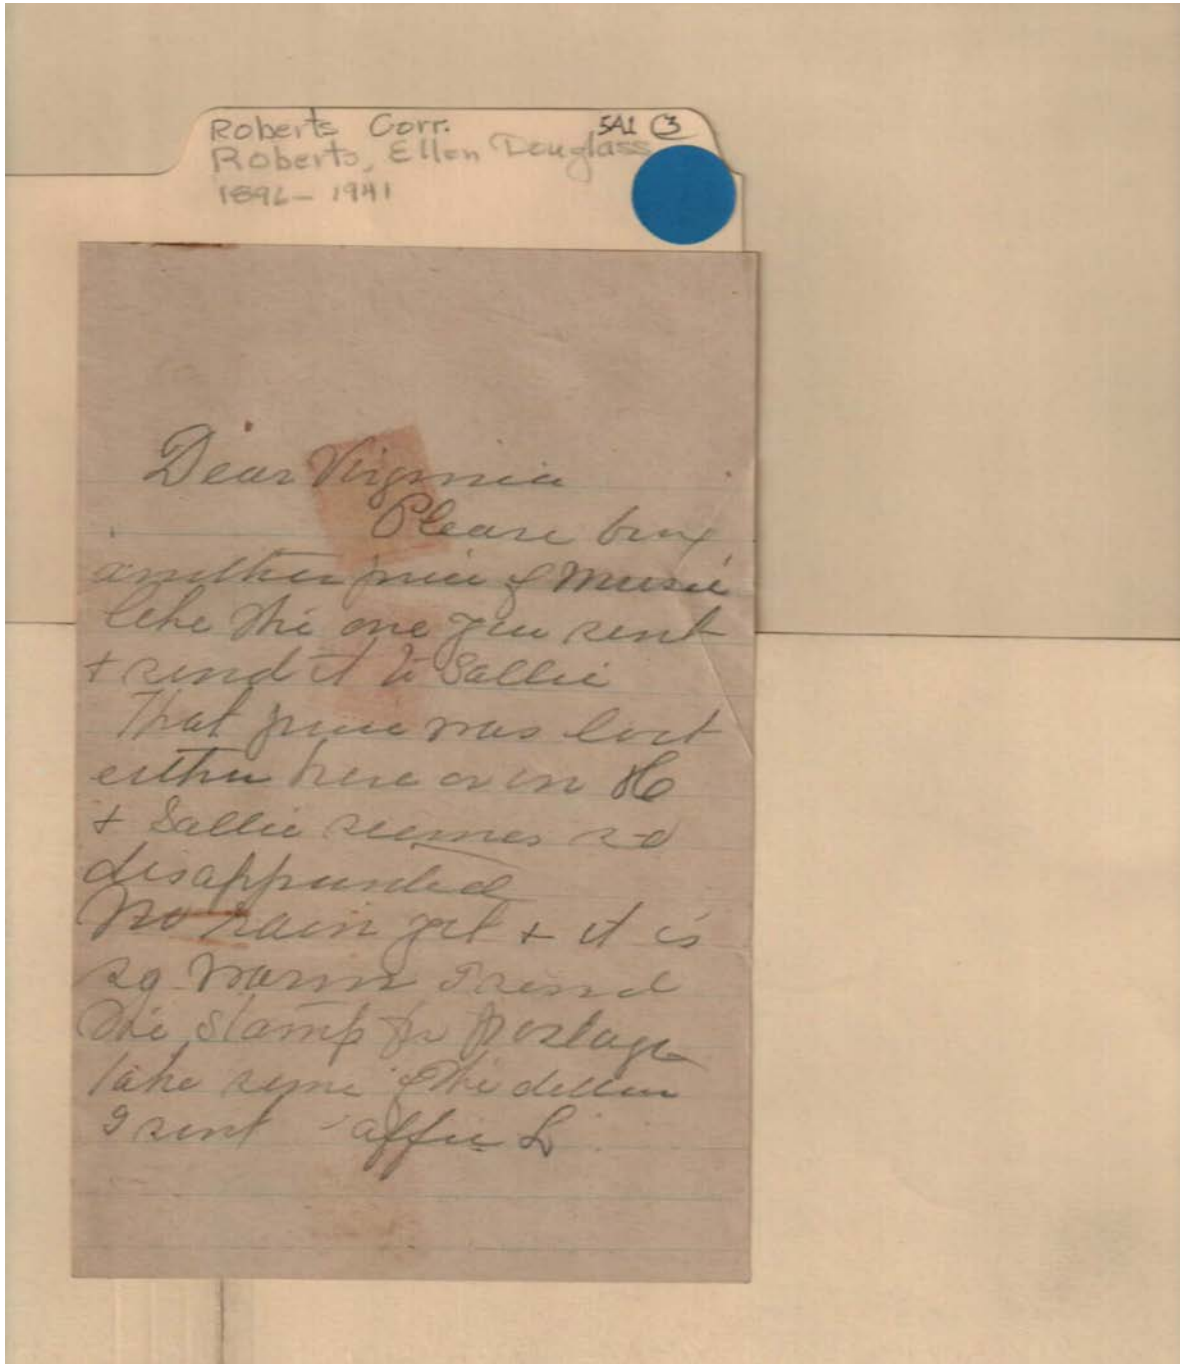 Roberts Corr. 5A1 3
Roberts, Ellen Douglass
1896 - 1941
Dear Virginia
Please buy
another piece of Music
like the one you sent
+ send it to Sallie
That piece was lost
either here or in H
+ Sallie seemes so
disappointed
No rain yet + it is
so warm I send
the stamp for postage
take some of the dollar
I sent affie L